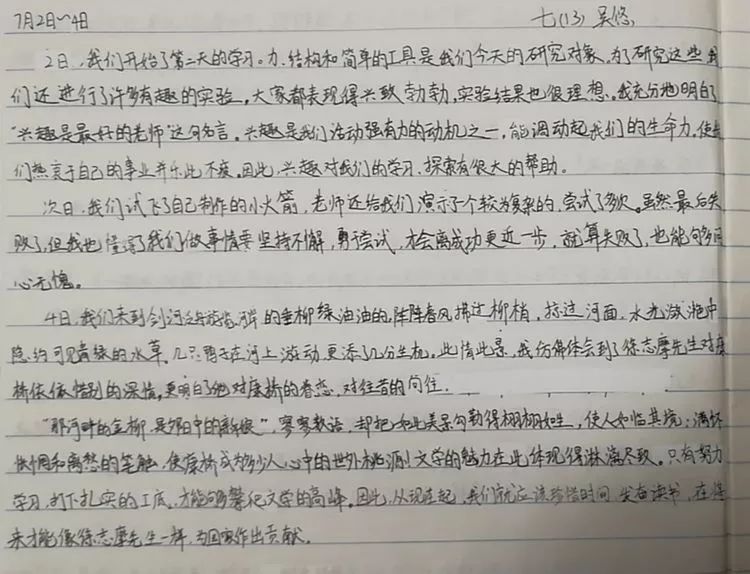 7月2日~4日 七(13) 吴悠
2日,我们开始了第二天的学习。力、结构和简单的工具是我们今天的研究对象。为了研究这些我
们还进行了许多有趣的实验。大家都表现得兴致勃勃,实验结果也很理想。我充分地明白了
“兴趣是最好的老师”这句名言。兴趣是我们活动强有力的动机之一,能调动起我们的生命力,使我
们热衷于自己的事业并乐此不疲。因此,兴趣对我们的学习、探索有很大的帮助。
次日,我们试飞了自己制作的小火箭,老师还给我们演示了个较为复杂的,尝试了多次。虽然最后失
败了,但我也懂得了我们做事情要坚持不懈,勇于尝试,才会离成功更近一步,就算失败了,也能够问
心无愧。
4日,我们来到剑河 河岸的垂柳绿油油的,阵阵春风拂过柳梢,掠过河面,水光潋滟中
隐约可见青绿的水草,几只鸭子在河上游动更添了几分生机。此情此景,我仿佛体会到了徐志摩先生对康
桥依依惜别的深情,更明白了他对康桥的眷恋,对往昔的向往。
“那河畔的金柳,是夕阳中的新娘”,寥寥数语,却把如此美景勾勒得栩栩如生,使人如临其境;满怀
惆怅和离愁的笔触,使康桥成为多少人心中的世外桃源!文学的魅力在此体现得淋漓尽致。只有努力
学习,打下扎实的工底,才能够攀化文学的高峰。因此,从现在起,我们就应该珍惜时间,发奋读书,在将
来才能像徐志摩先生一样,为国家作出贡献。